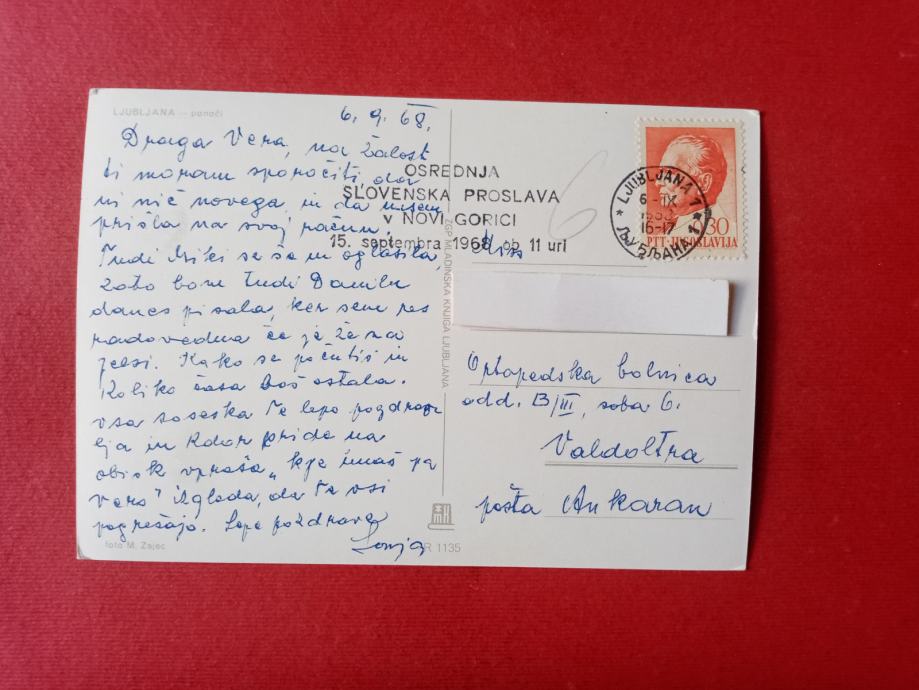 LJUBLJANA — ponoči
6. 9. 68.
Draga Vera, na žalost
ti moram sporočiti, da
ni nič novega, in da nisem
prišla na svoj račun.
Tudi Miki se še ni oglasila,
zato bom tudi Danilu
danes pisala, ker sem res
radovedna če je že na
Kako se počutiš in
koliko časa boš ostala.
vsa soseska te lepo pozdrav
lja in kdor pride na
obisk vpraša „kje imaš pa
Vero" izgleda, da te vsi
pogrešajo. Lepe pozdrave
Sonja
foto M. Zajec
ZGP MLADINSKA KNJIGA LJUBLJANA
R 1135
OSREDNJA
SLOVENSKA PROSLAVA
V NOVI GORICI
15. septembra 1968 ob 11 uri
6
LJUBLJANA 1
6-IX
16-17
ЉУБЉАНА 1
0,30
PTT JUGOSLAVIJA
Ortopedska bolnica
odd. B/III, soba 6.
Valdoltra
pošta Ankaran